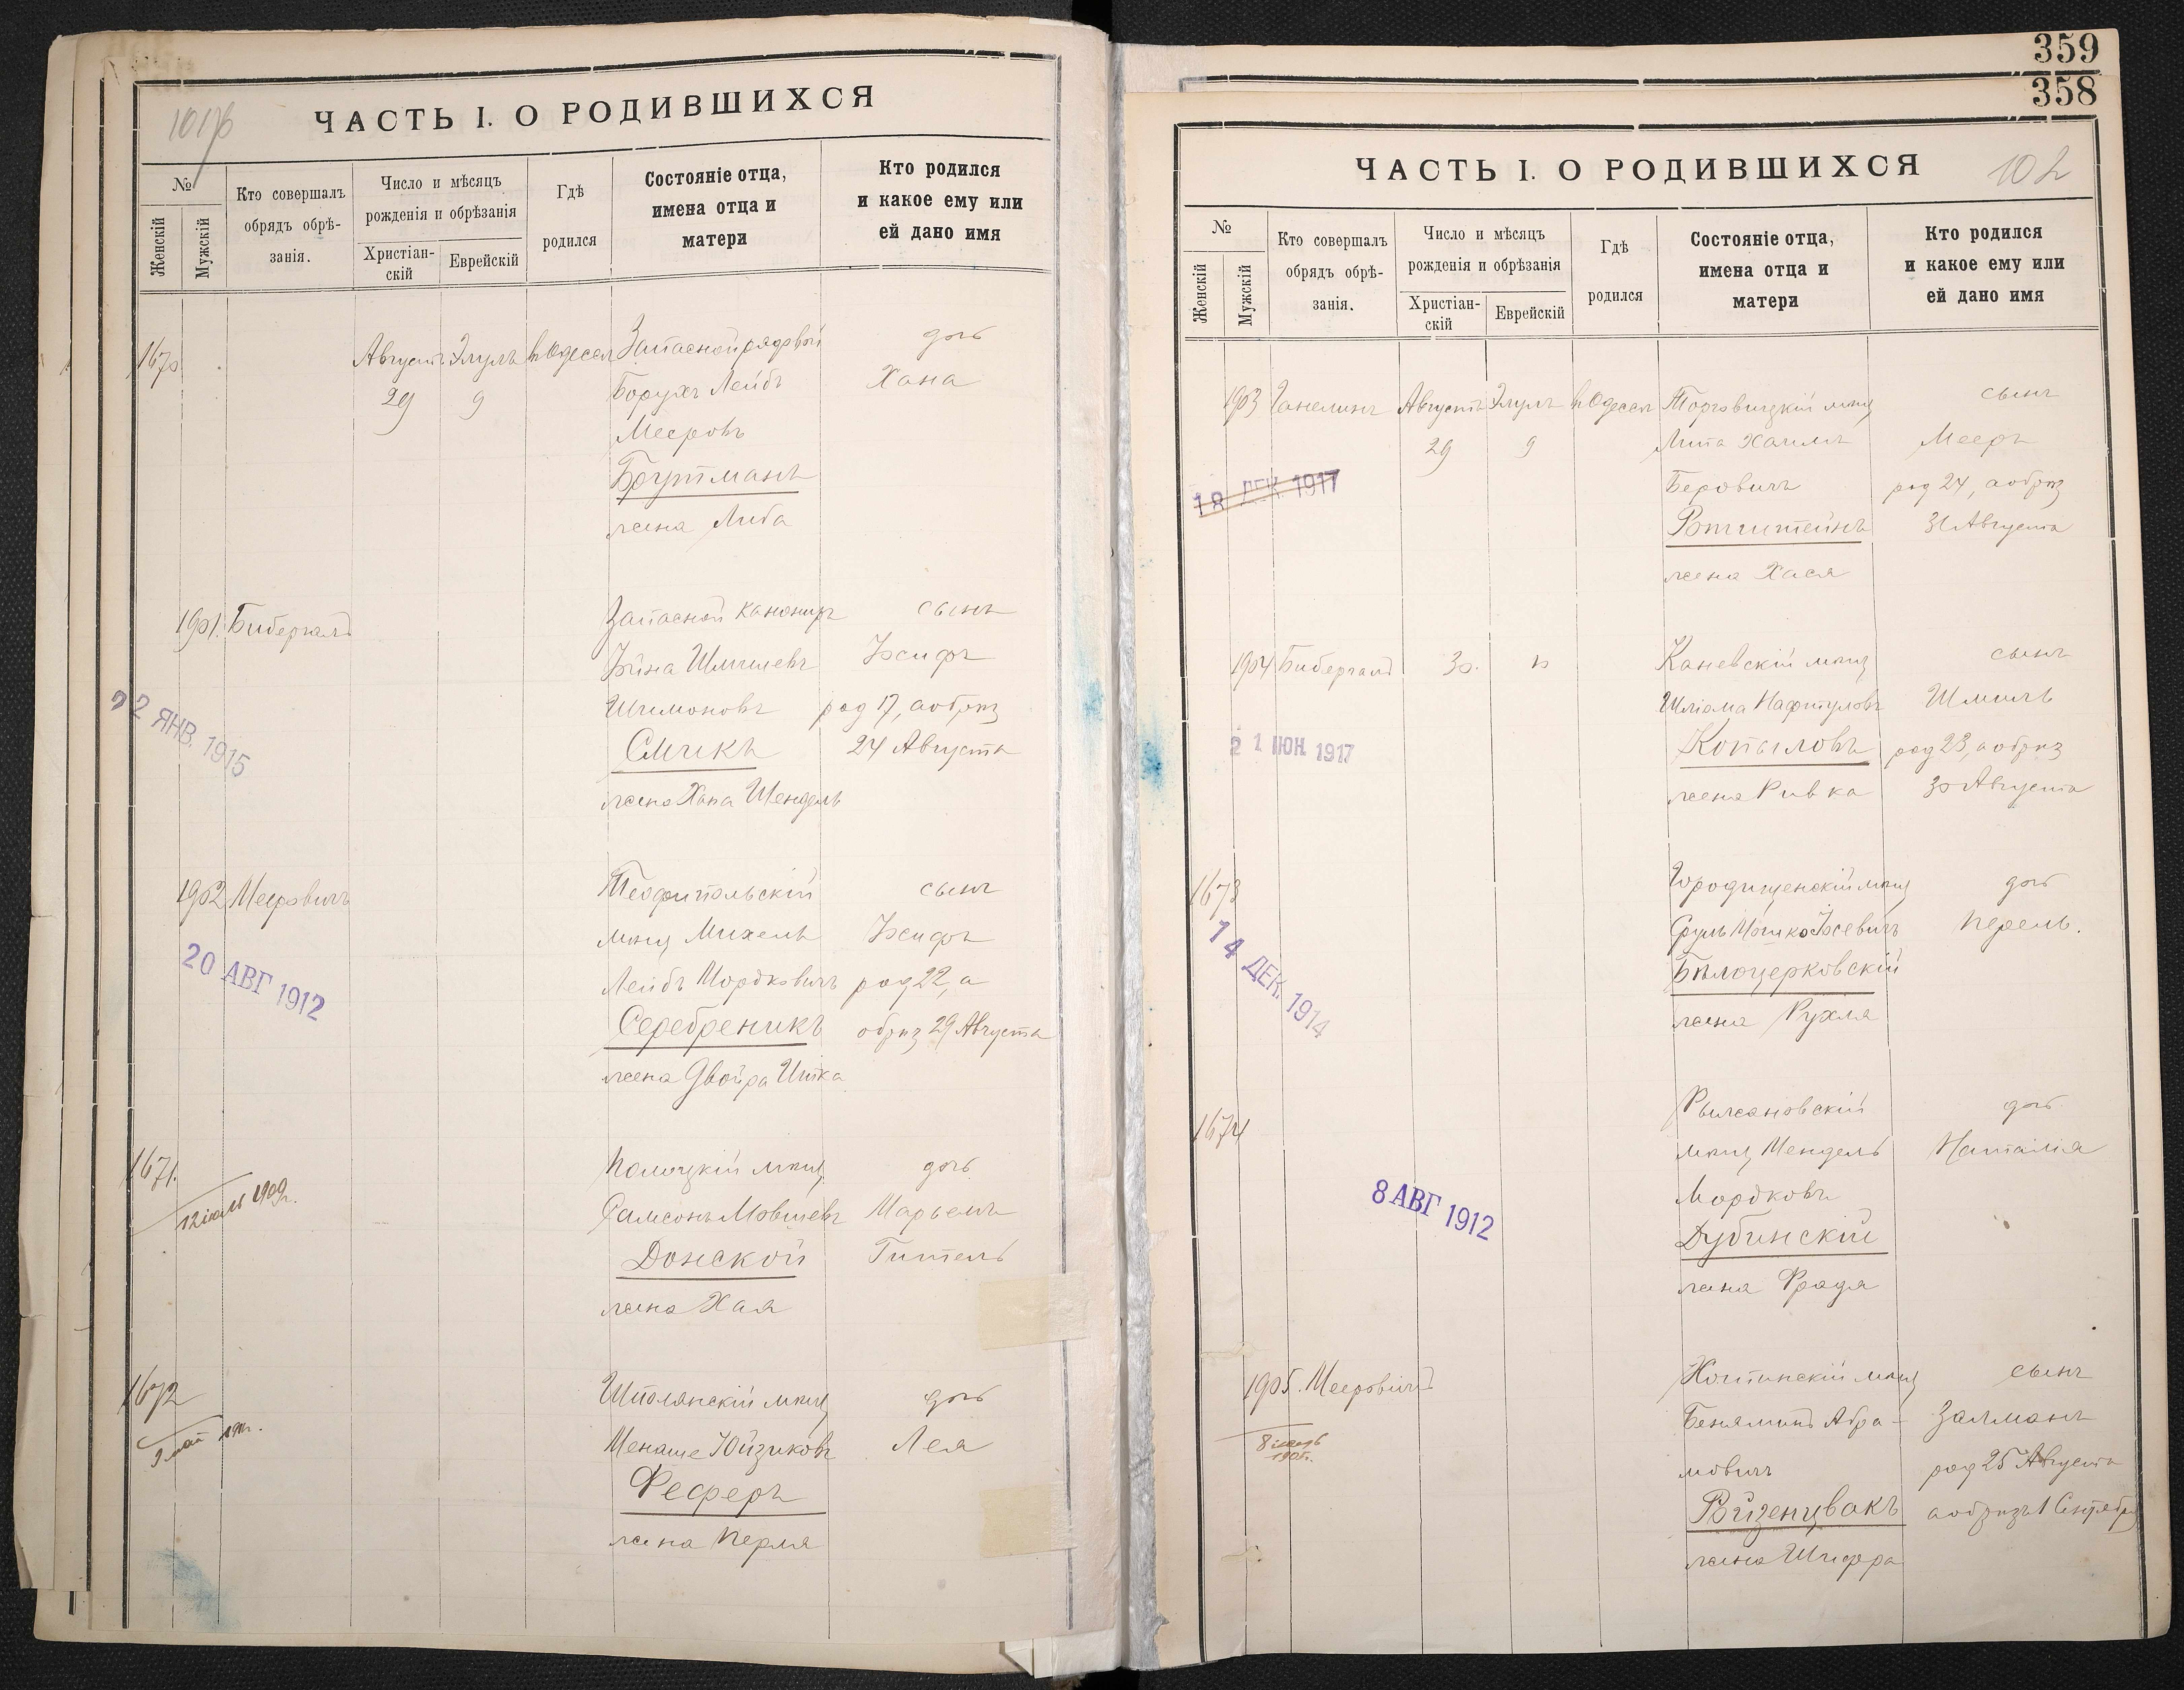 ЧАСТЬ I. О РОДИВШИХСЯ
№
Женскій
Мужскій
Кто совершалъ
обрядъ обрѣ-
занія.
Число и мѣсяцъ
рожденія и обрѣзанія
Христіан-
скій
Еврейскій
Гдѣ
родился
Состояніе отца,
имена отца и
матери
Кто родился
и какое ему или
ей дано имя
1670
Августъ Элулъ Одесса Запасной рядовой дочь
29 9 Борухъ Лейбъ Хана
Мееровъ
жена Либа
1901. Бибергалъ Запасной канониръ сынъ
Іосифъ
Шимоновъ род 17, а обрѣз
24 Августа
Смикъ
жена Хана Шендель
22 ЯНВ. 1915
1902 Мееровичъ Теофипольскій сынъ
мѣщ Михель Іосифъ
Лейбъ Мордковичъ род 22, а
Серебреникъ обрѣз 29 Августа
жена Двойра Итка
20 АВГ 1912
1671. Полоцкій мѣщ дочь
12 іюль 1909г.
Самсонъ Мовшевъ Марьемъ
Донской Гитель
жена Хая
1672 Шполянскій мѣщ дочь
Менаше Лея
Феферъ
жена Перля
359
358
ЧАСТЬ I. О РОДИВШИХСЯ
102
№
Женскій
Мужскій
Кто совершалъ
обрядъ обрѣ-
занія.
Число и мѣсяцъ
рожденія и обрѣзанія
Христіан-
скій
Еврейскій
Гдѣ
родился
Состояніе отца,
имена отца и
матери
Кто родился
и какое ему или
ей дано имя
1903 Ганелинъ Августъ Элулъ Одесса Торговицкій мѣщ сынъ
29 9 Липа Хаимъ Мееръ
Беровичъ род 24, а обрѣз
31 Августа
жена Хася
18 ДЕК. 1917
1904 Бибергалъ 30. 10 Каневскій мѣщ сынъ
Шлiома Нафтуловъ Шмиль
Копыловъ род 23, а обрѣз
жена Ривка 30 Августа
21 ІЮН. 1917
1673 Городищенскій мѣщ дочь
Сруль Мошко Іосевичъ Перель.
Бѣлоцерковскій
жена Рухля
14 ДЕК. 1914
1674 дочь
мѣщ Мендель Наталія
Мордковъ
Дубинскій
жена Фрадя
8 АВГ 1912
1905. Мееровичъ Хотинскій мѣщ сынъ
Беняминъ Абра- Залманъ
мовичъ род 25 Августа
Ройзенцвакъ а обрѣзъ 1 Сентября
жена Шифра